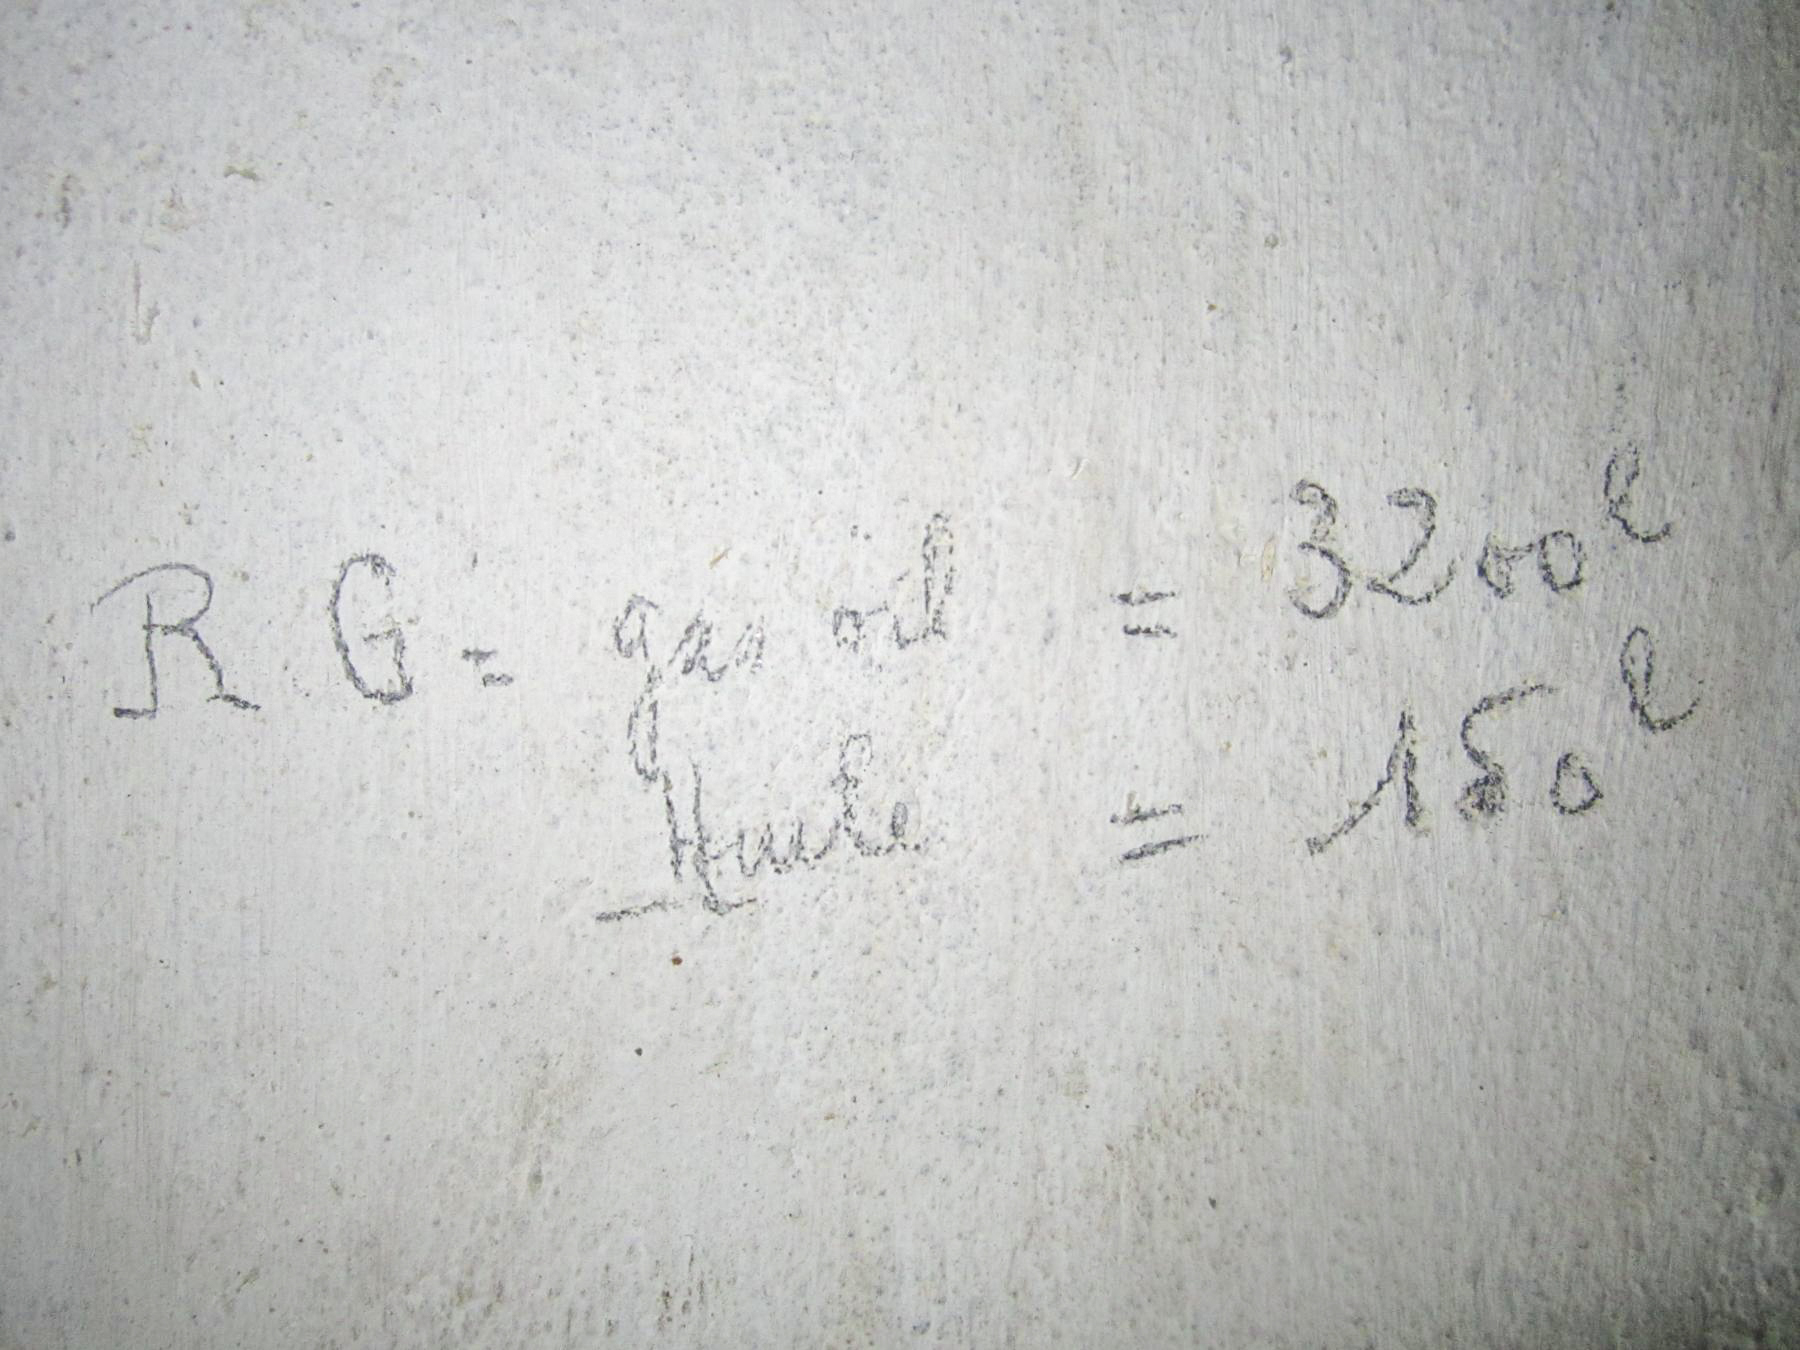 R G = gas oil = 3200 l
Huile = 150 l